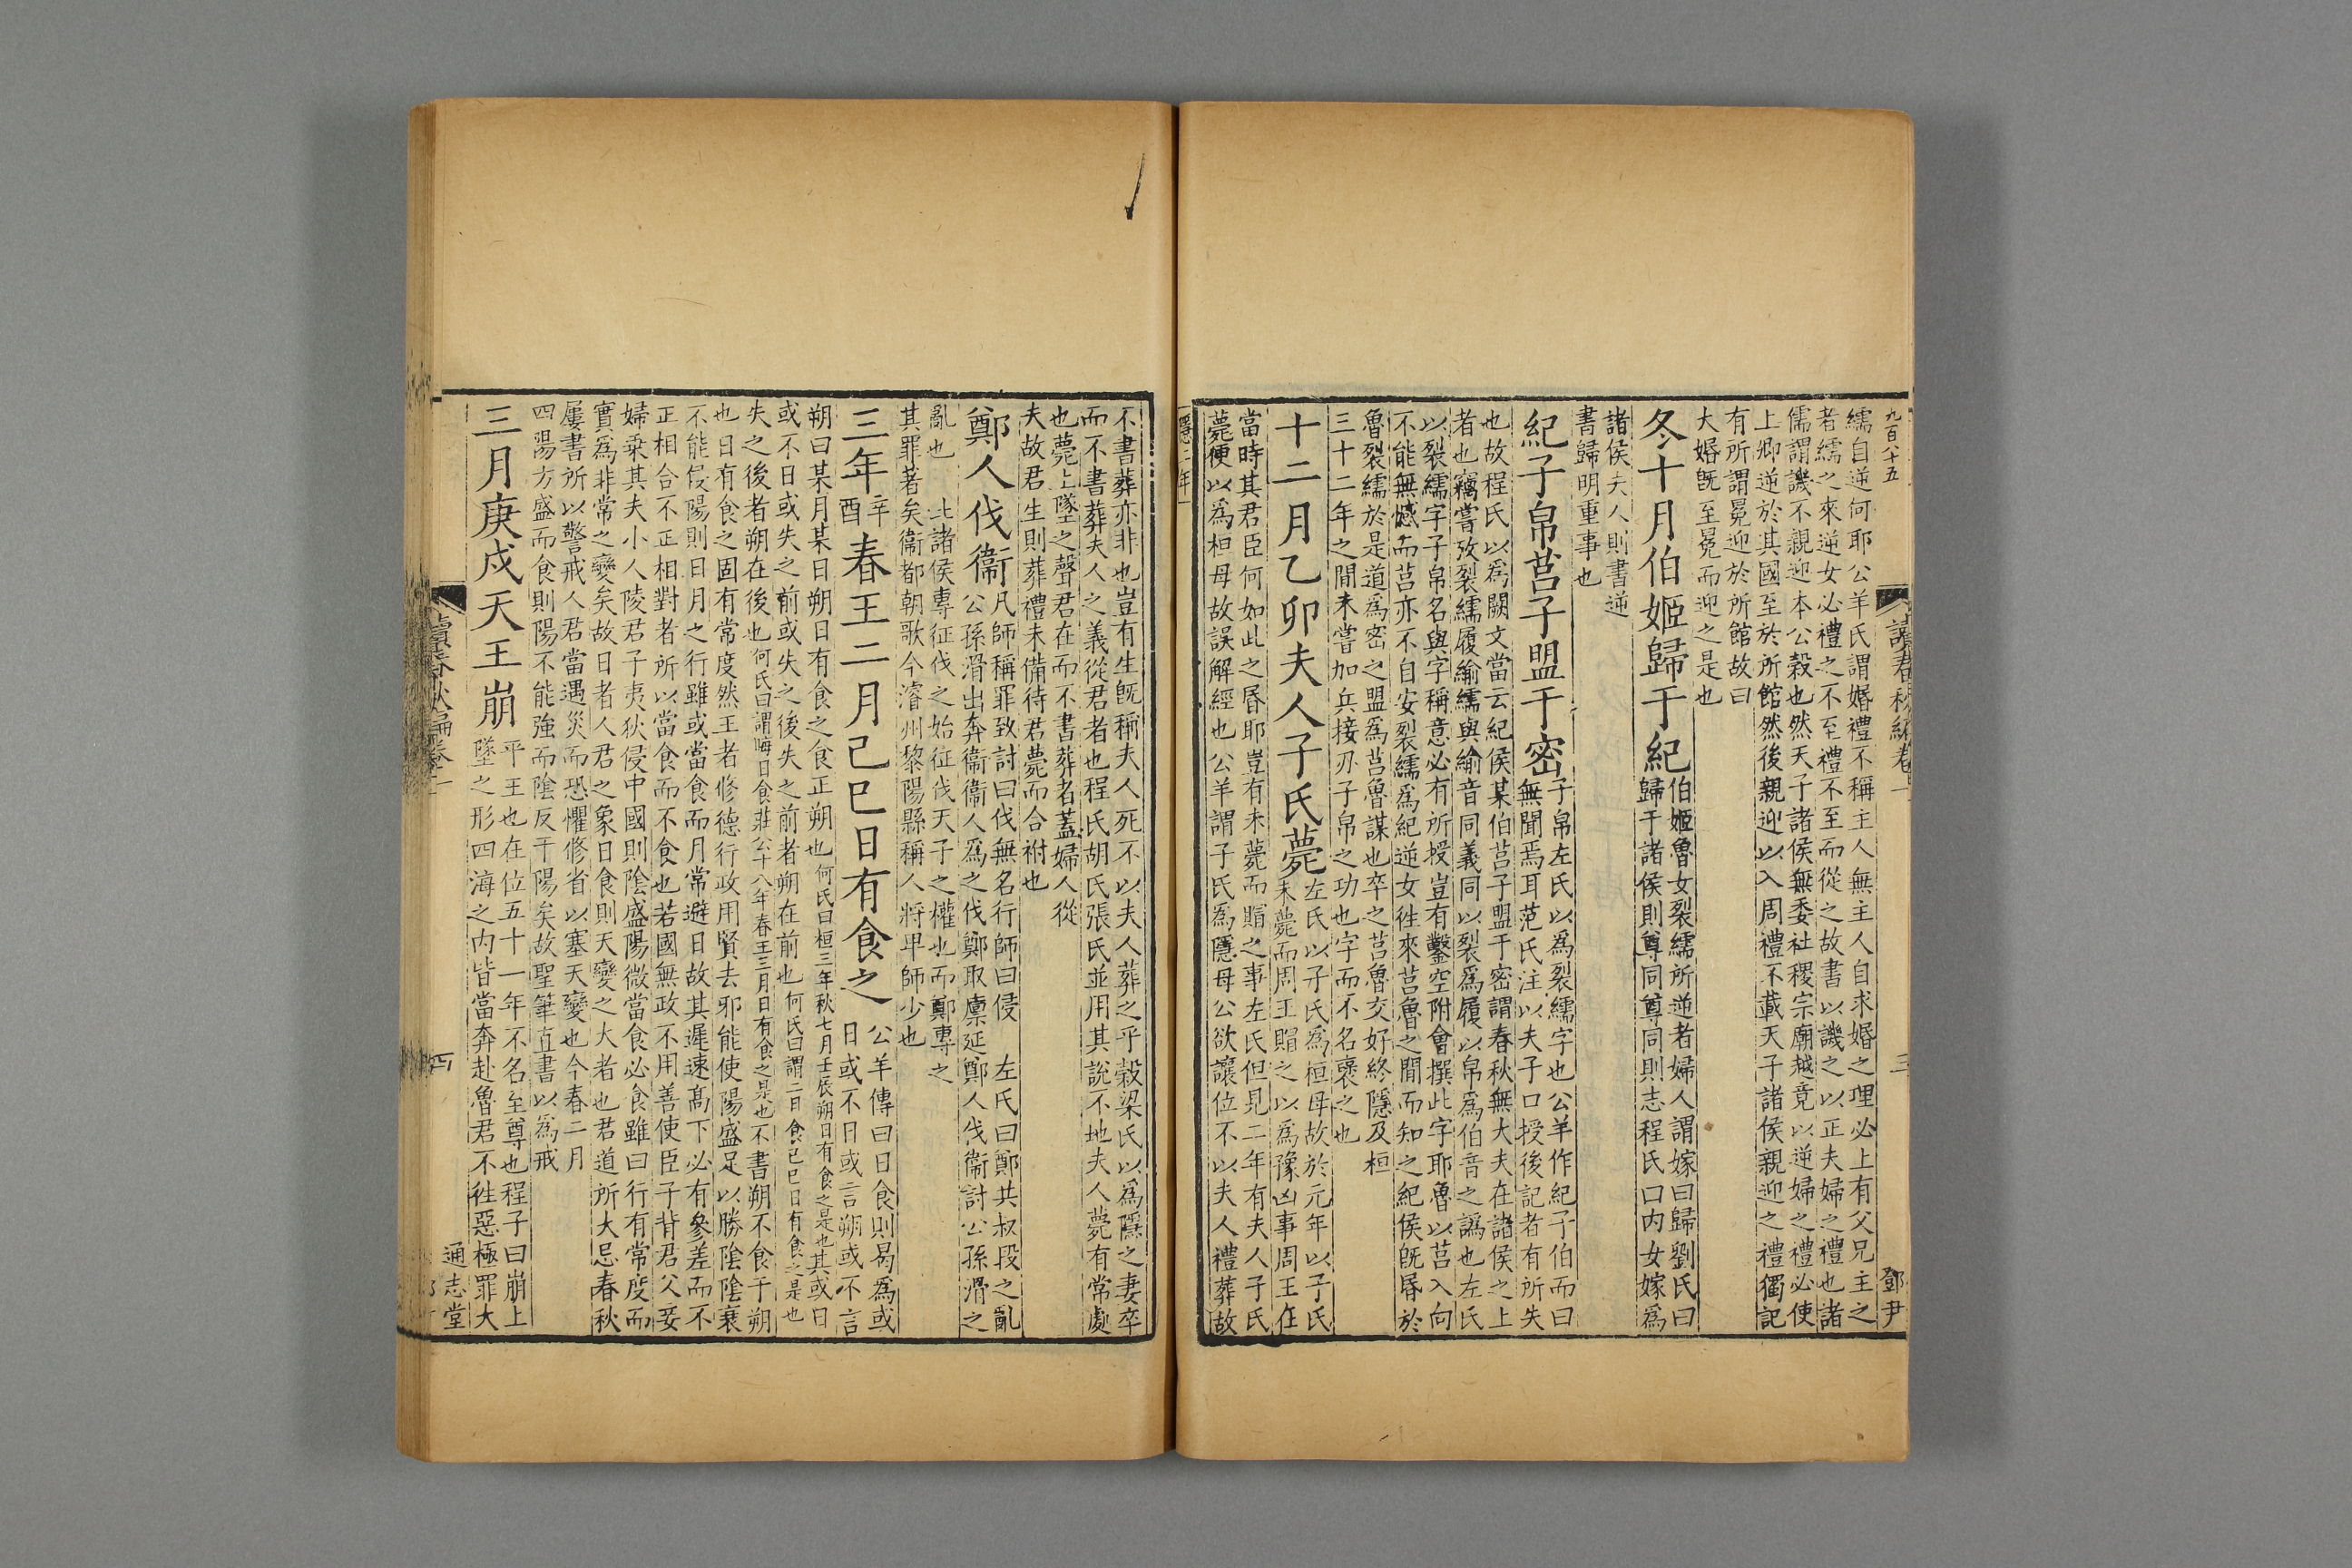 九百八十五
讀春秋編卷一
三
鄧尹
繻自逆何耶公羊氏謂婚禮不稱主人無主人自求婚之理必上有父兄主之
者繻之來逆女必禮之不至禮不至而從之故書以譏之以正夫婦之禮也諸
儒謂譏不親迎本公穀也然天子諸侯無委社稷宗廟越竟以逆婦之禮必使
上卿逆於其國至於所館然後親迎以入周禮不載天子諸侯親迎之禮獨記
有所謂冕迎於所館故曰
大婚旣至冕而迎之是也
冬十月伯姬歸于紀
伯姬魯女裂繻所逆者婦人謂嫁曰歸劉氏曰
歸于諸侯則尊同尊同則志程氏曰內女嫁爲
諸侯夫人則書逆
書歸明重事也
紀子帛莒子盟于密
子帛左氏以爲裂繻字也公羊作紀子伯而曰
無聞焉耳范氏注以夫子口授後記者有所失
也故程氏以爲闕文當云紀侯某伯莒子盟于密謂春秋無大夫在諸侯之上
者也竊嘗攷裂繻履緰繻與緰音同義同以裂爲履以帛爲伯音之譌也左氏
以裂繻字子帛名與字稱意必有所授豈有鑿空附會撰此字耶魯以莒入向
不能無憾而莒亦不自安裂繻爲紀逆女往來莒魯之間而知之紀侯旣昏於
魯裂繻於是道爲密之盟爲莒魯謀也卒之莒魯交好終隱及桓
三十二年之間未嘗加兵接刃子帛之功也字而不名褒之也
十二月乙卯夫人子氏薨
左氏以子氏爲桓母故於元年以子氏
未薨而周王賵之以爲豫凶事周王在
當時其君臣何如此之昏耶豈有未薨而賵之事左氏但見二年有夫人子氏
薨便以爲桓母故誤解經也公羊謂子氏爲隱母公欲讓位不以夫人禮葬故
隱二年
不書葬亦非也豈有生旣稱夫人死不以夫人葬之乎穀梁氏以爲隱之妻卒
而不書葬夫人之義從君者也程氏胡氏張氏並用其說不地夫人薨有常處
也薨上墜之聲君在而不書葬者蓋婦人從
夫故君生則葬禮未備待君薨而合祔也
鄭人伐衞
凡師稱罪致討曰伐無名行師曰侵 左氏曰鄭共叔段之亂
公孫滑出奔衞衞人爲之伐鄭取廪延鄭人伐衞討公孫滑之
亂也 此諸侯專征伐之始征伐天子之權也而鄭專之
其罪著矣衞都朝歌今濬州黎陽縣稱人將卑師少也
三年
辛
酉
春王二月己巳日有食之
公羊傳曰日食則曷爲或
日或不日或言朔或不言
朔曰某月某日朔日有食之食正朔也何氏曰桓三年秋七月壬辰朔日有食之是也其或日
或不日或失之前或失之後失之前者朔在前也何氏曰謂二日食己巳日有食之是也
失之後者朔在後也何氏曰謂晦日食莊公十八年春王三月日有食之是也不書朔不食于朔
也日有食之固有常度然王者修德行政用賢去邪能使陽盛足以勝陰陰衰
不能侵陽則日月之行雖或當食而月常避日故其遲速高下必有參差而不
正相合不正相對者所以當食而不食也若國無政不用善使臣子背君父妾
婦乘其夫小人陵君子夷狄侵中國則陰盛陽微當食必食雖曰行有常度而
實爲非常之變矣故日者人君之象日食則天變之大者也君道所大忌春秋
屢書所以警戒人君當遇災而恐懼修省以塞天變也今春二月
四陽方盛而食則陽不能強而陰反干陽矣故聖筆直書以爲戒
三月庚戌天王崩
平王也在位五十一年不名至尊也程子曰崩上
墜之形四海之內皆當奔赴魯君不往惡極罪大
讀春秋編卷一
四
通志堂